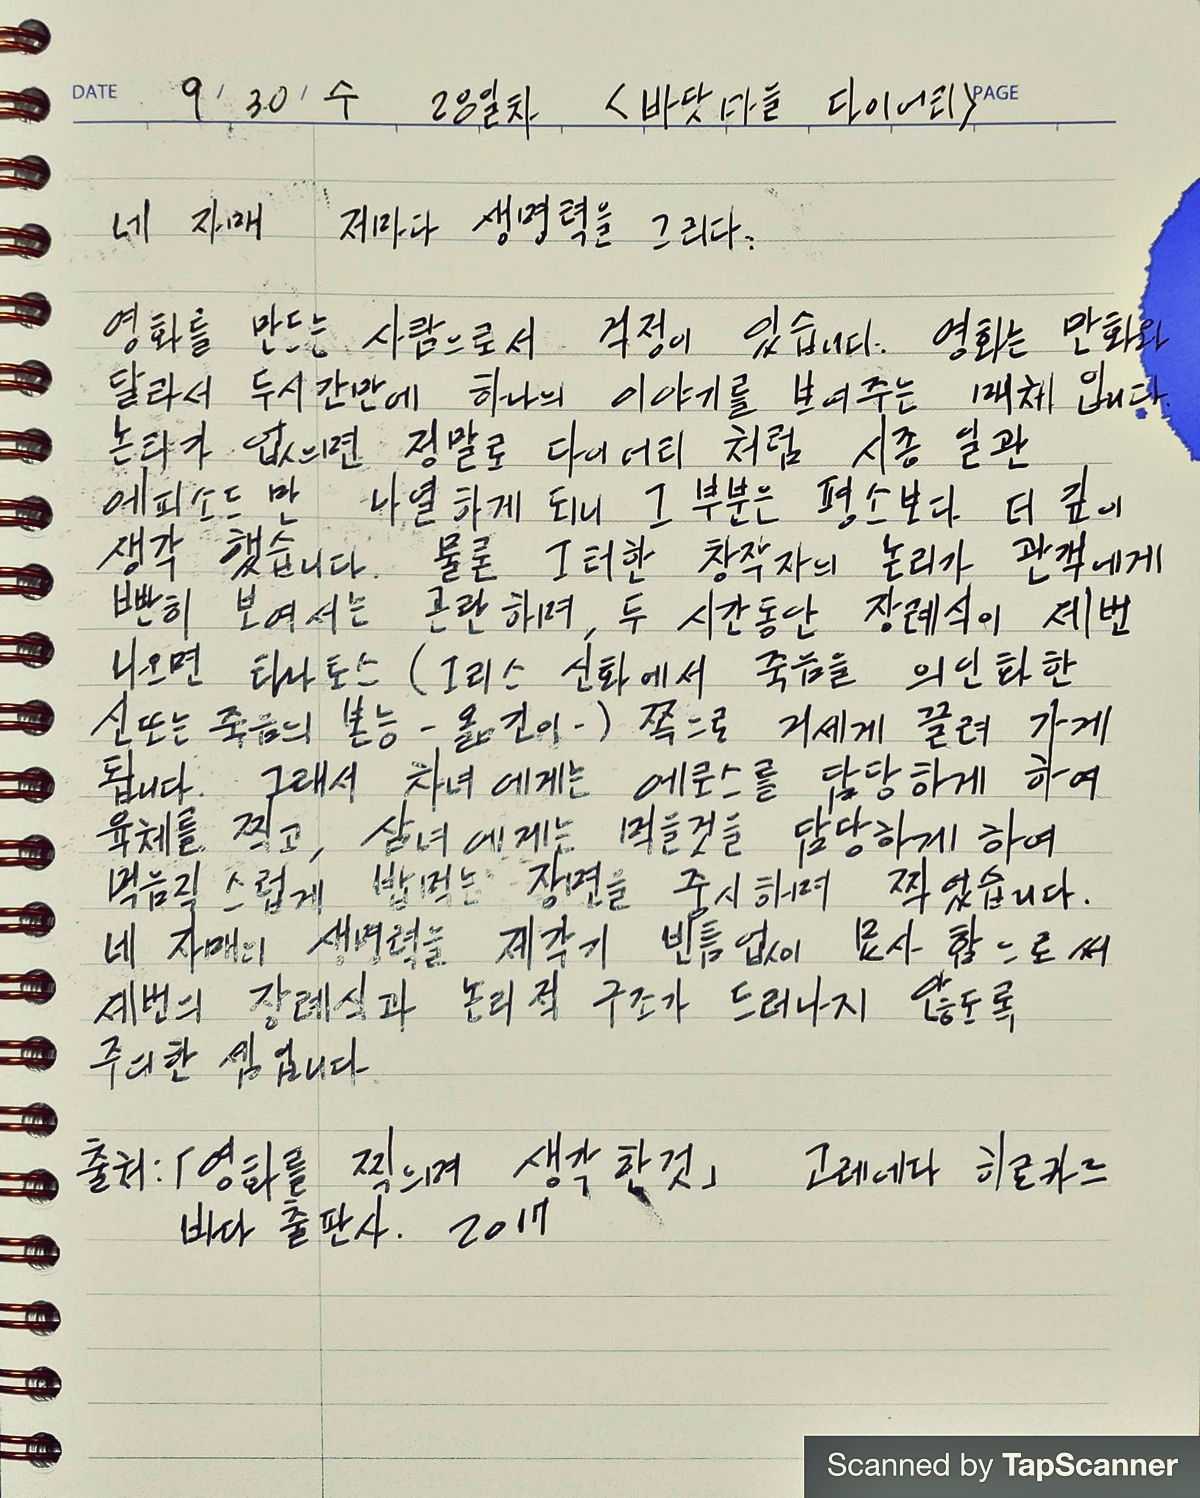 DATE 9 / 30 / 수 28일차 <바닷마을 다이어리> PAGE
네 자매 저마다 생명력을 그리다.
영화를 만드는 사람으로서 걱정이 있습니다. 영화는 만화와
달라서 두시간만에 하나의 이야기를 보여주는 매체 입니다.
논타가 없으면 정말로 다이어리 처럼 시종 일관
에피소드만 나열하게 되니 그 부분은 평소보다 더 깊이
생각 했습니다. 물론 그러한 창작자의 논리가 관객에게
빤히 보여서는 곤란하며, 두 시간동안 장례식이 세번
나오면 타나토스 (그리스 신화에서 죽음을 의인화한
신또는 죽음의 본능 - 옮긴이-) 쪽으로 거세게 끌려 가게
됩니다. 그래서 차녀에게는 에로스를 담당하게 하여
육체를 찍고, 삼녀에게는 먹을것을 담당하게 하여
먹음직스럽게 밥먹는 장면을 중시하며 찍었습니다.
네 자매의 생명력을 제각기 빈틈없이 묘사 함으로써
세번의 장례식과 논리적 구조가 드러나지 않도록
주의한 셈입니다.
출처:「영화를 찍으며 생각한것」 고레에다 히로카즈
바다 출판사. 2017
Scanned by TapScanner